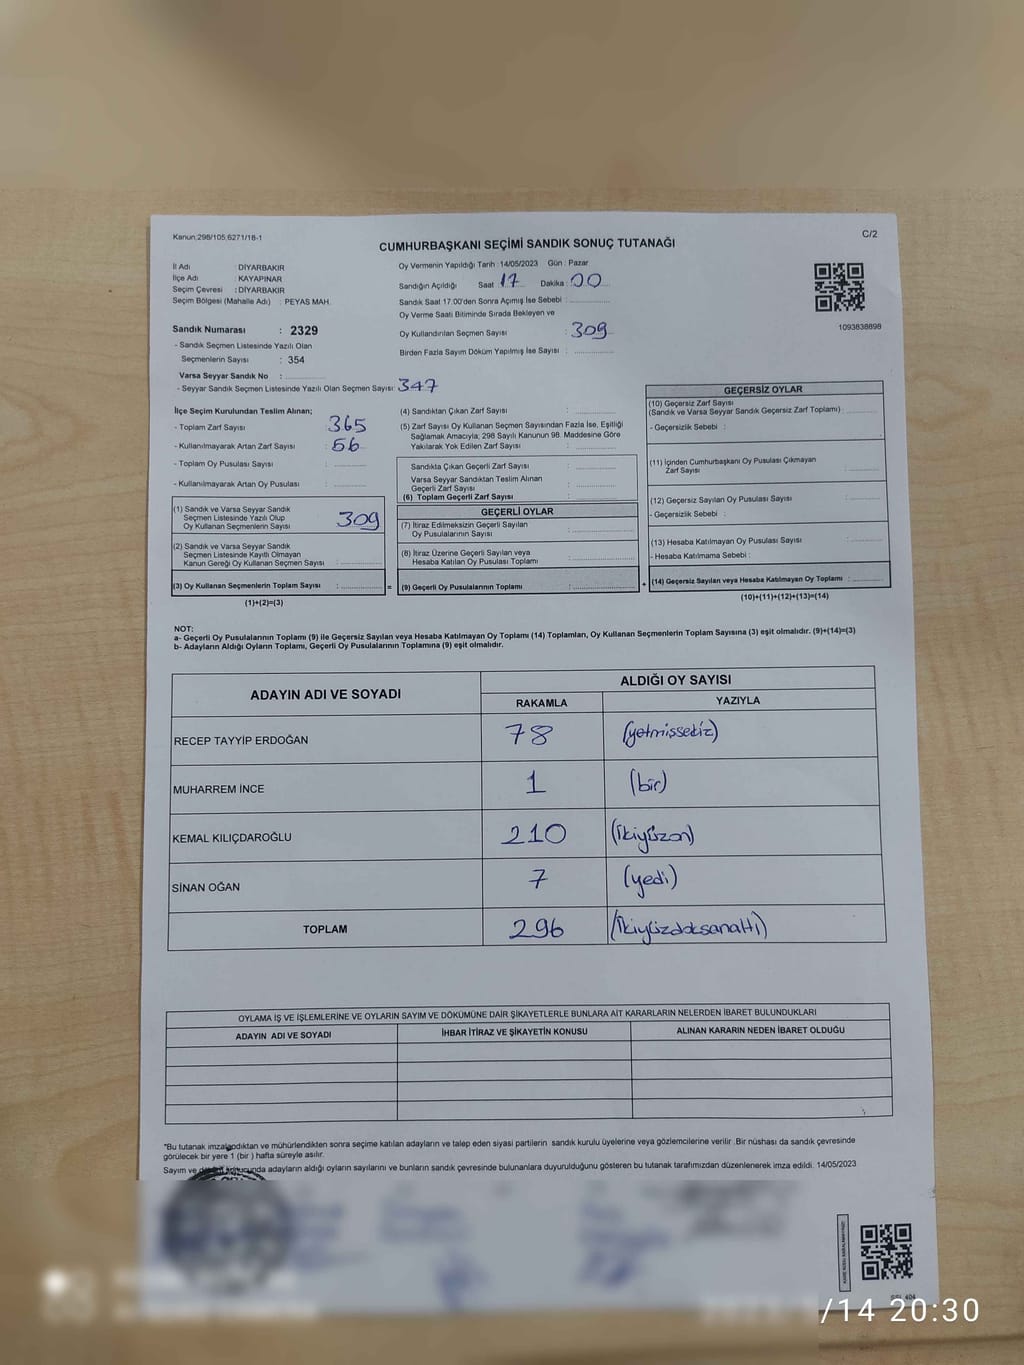 Kanun:298/105,6271/18-1
C/2
CUMHURBAŞKANI SEÇİMİ SANDIK SONUÇ TUTANAĞI
İl Adı : DİYARBAKIR
İlçe Adı : KAYAPINAR
Seçim Çevresi : DİYARBAKIR
Seçim Bölgesi (Mahalle Adı) : PEYAS MAH.
Sandık Numarası : 2329
- Sandık Seçmen Listesinde Yazılı Olan
Seçmenlerin Sayısı : 354
Varsa Seyyar Sandık No :
- Seyyar Sandık Seçmen Listesinde Yazılı Olan Seçmen Sayısı: 347
Oy Vermenin Yapıldığı Tarih : 14/05/2023 Gün : Pazar
Sandığın Açıldığı Saat : 17 Dakika : 00
Sandık Saat 17.00'den Sonra Açılmış İse Sebebi :
Oy Verme Saati Bitiminde Sırada Bekleyen ve
Oy Kullandırılan Seçmen Sayısı : 309
Birden Fazla Sayım Döküm Yapılmış İse Sayısı :
1093838898
İlçe Seçim Kurulundan Teslim Alınan;
- Toplam Zarf Sayısı : 365
- Kullanılmayarak Artan Zarf Sayısı : 56
- Toplam Oy Pusulası Sayısı :
- Kullanılmayarak Artan Oy Pusulası :
(1) Sandık ve Varsa Seyyar Sandık
Seçmen Listesinde Yazılı Olup
Oy Kullanan Seçmenlerin Sayısı 309
(2) Sandık ve Varsa Seyyar Sandık
Seçmen Listesinde Kayıtlı Olmayan
Kanun Gereği Oy Kullanan Seçmen Sayısı :
(3) Oy Kullanan Seçmenlerin Toplam Sayısı : =
(1)+(2)=(3)
(4) Sandıktan Çıkan Zarf Sayısı :
(5) Zarf Sayısı Oy Kullanan Seçmen Sayısından Fazla İse, Eşitliği
Sağlamak Amacıyla, 298 Sayılı Kanunun 98. Maddesine Göre
Yakılarak Yok Edilen Zarf Sayısı :
Sandıkta Çıkan Geçerli Zarf Sayısı :
Varsa Seyyar Sandıktan Teslim Alınan
Geçerli Zarf Sayısı :
(6) Toplam Geçerli Zarf Sayısı :
GEÇERLİ OYLAR
(7) İtiraz Edilmeksizin Geçerli Sayılan
Oy Pusulalarının Sayısı :
(8) İtiraz Üzerine Geçerli Sayılan veya
Hesaba Katılan Oy Pusulası Toplamı :
(9) Geçerli Oy Pusulalarının Toplamı : +
GEÇERSİZ OYLAR
(10) Geçersiz Zarf Sayısı
(Sandık ve Varsa Seyyar Sandık Geçersiz Zarf Toplamı) :
- Geçersizlik Sebebi :
(11) İçinden Cumhurbaşkanı Oy Pusulası Çıkmayan
Zarf Sayısı :
(12) Geçersiz Sayılan Oy Pusulası Sayısı :
- Geçersizlik Sebebi :
(13) Hesaba Katılmayan Oy Pusulası Sayısı :
- Hesaba Katılmama Sebebi :
(14) Geçersiz Sayılan veya Hesaba Katılmayan Oy Toplamı :
(10)+(11)+(12)+(13)=(14)
NOT:
a- Geçerli Oy Pusulalarının Toplamı (9) ile Geçersiz Sayılan veya Hesaba Katılmayan Oy Toplamı (14) Toplamları, Oy Kullanan Seçmenlerin Toplam Sayısına (3) eşit olmalıdır. (9)+(14)=(3)
b- Adayların Aldığı Oyların Toplamı, Geçerli Oy Pusulalarının Toplamına (9) eşit olmalıdır.
ADAYIN ADI VE SOYADI ALDIĞI OY SAYISI
RAKAMLA YAZIYLA
RECEP TAYYİP ERDOĞAN 78 (yetmişsekiz)
MUHARREM İNCE 1 (bir)
KEMAL KILIÇDAROĞLU 210 (ikiyüzon)
SİNAN OĞAN 7 (yedi)
TOPLAM 296 (ikiyüzdoksanaltı)
OYLAMA İŞ VE İŞLEMLERİNE VE OYLARIN SAYIM VE DÖKÜMÜNE DAİR ŞİKAYETLERLE BUNLARA AİT KARARLARIN NELERDEN İBARET BULUNDUKLARI
ADAYIN ADI VE SOYADI İHBAR İTİRAZ VE ŞİKAYETİN KONUSU ALINAN KARARIN NEDEN İBARET OLDUĞU
*Bu tutanak imzalandıktan ve mühürlendikten sonra seçime katılan adayların ve talep eden siyasi partilerin sandık kurulu üyelerine veya gözlemcilerine verilir .Bir nüshası da sandık çevresinde
görülecek bir yere 1 (bir ) hafta süreyle asılır.
Sayım ve adayların aldığı oyların sayılarını ve bunların sandık çevresinde bulunanlara duyurulduğunu gösteren bu tutanak tarafımızdan düzenlenerek imza edildi. 14/05/2023
/14 20:30